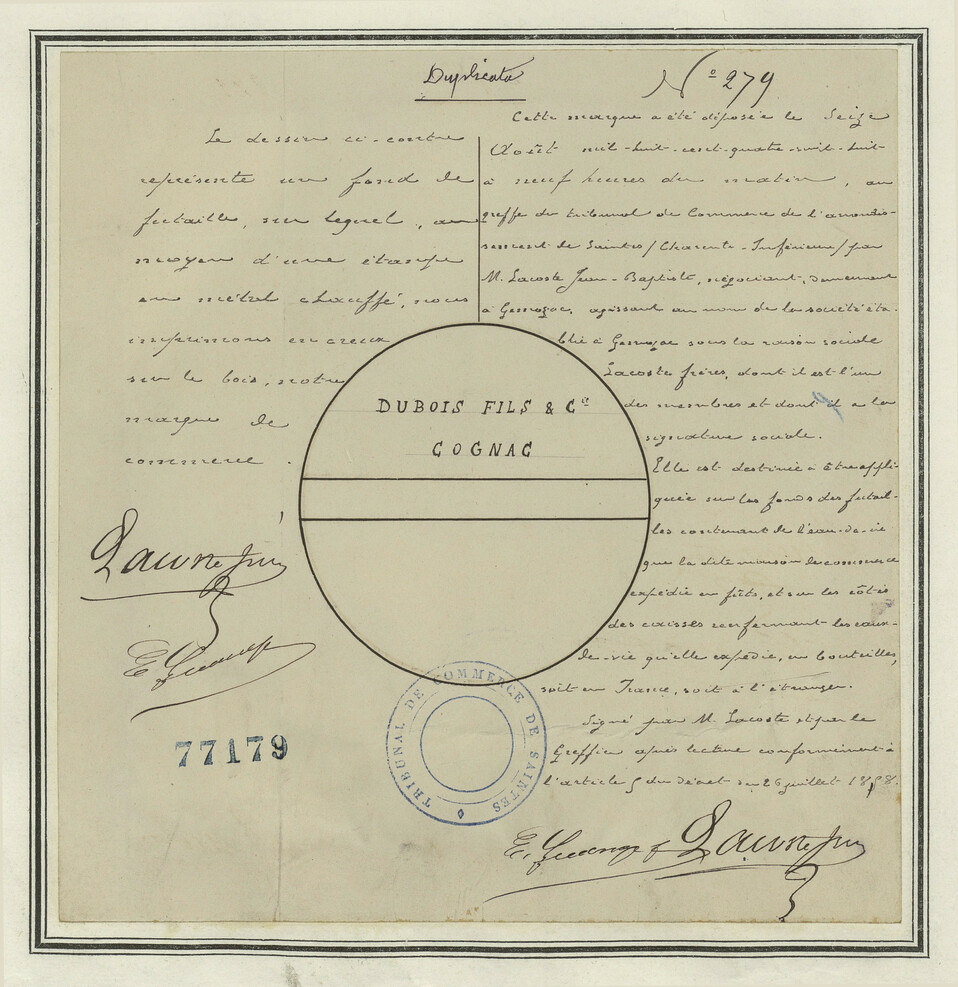 Duplicata
N° 279
Le dessin ci-contre
représente un fond de
futaille, sur lequel, au
moyen d'une étampe
en métal chauffé, nous
imprimons en creux
sur le bois, notre
marque de
commerce.
Cette marque a été déposée le Seize
Août mil-huit-cent-quatre-vingt-huit
à neuf heures du matin, au
greffe du tribunal de Commerce de l'arrondis-
sement de Saintes / Charente-Inférieure / par
M. Lacoste Jean-Baptiste, négociant, demeurant
à Gemozac, agissant au nom de la société éta-
blie à Gemozac sous la raison sociale
Lacoste frères, dont il est l'un
des membres et dont il a la
signature sociale.
Elle est destinée à être appli-
quée sur les fonds des futail-
les contenant de l'eau-de-vie
que la dite maison de commerce
expédie en fûts, et sur les côtés
des caisses renfermant les eaux-
de-vie qu'elle expédie, en bouteilles,
soit en France, soit à l'étranger.
Signé par M. Lacoste et par le
Greffier après lecture conformément à
l'article 5 du décret du 26 juillet 1858.
DUBOIS FILS & Cie
COGNAC
77179
TRIBUNAL DE COMMERCE DE SAINTES